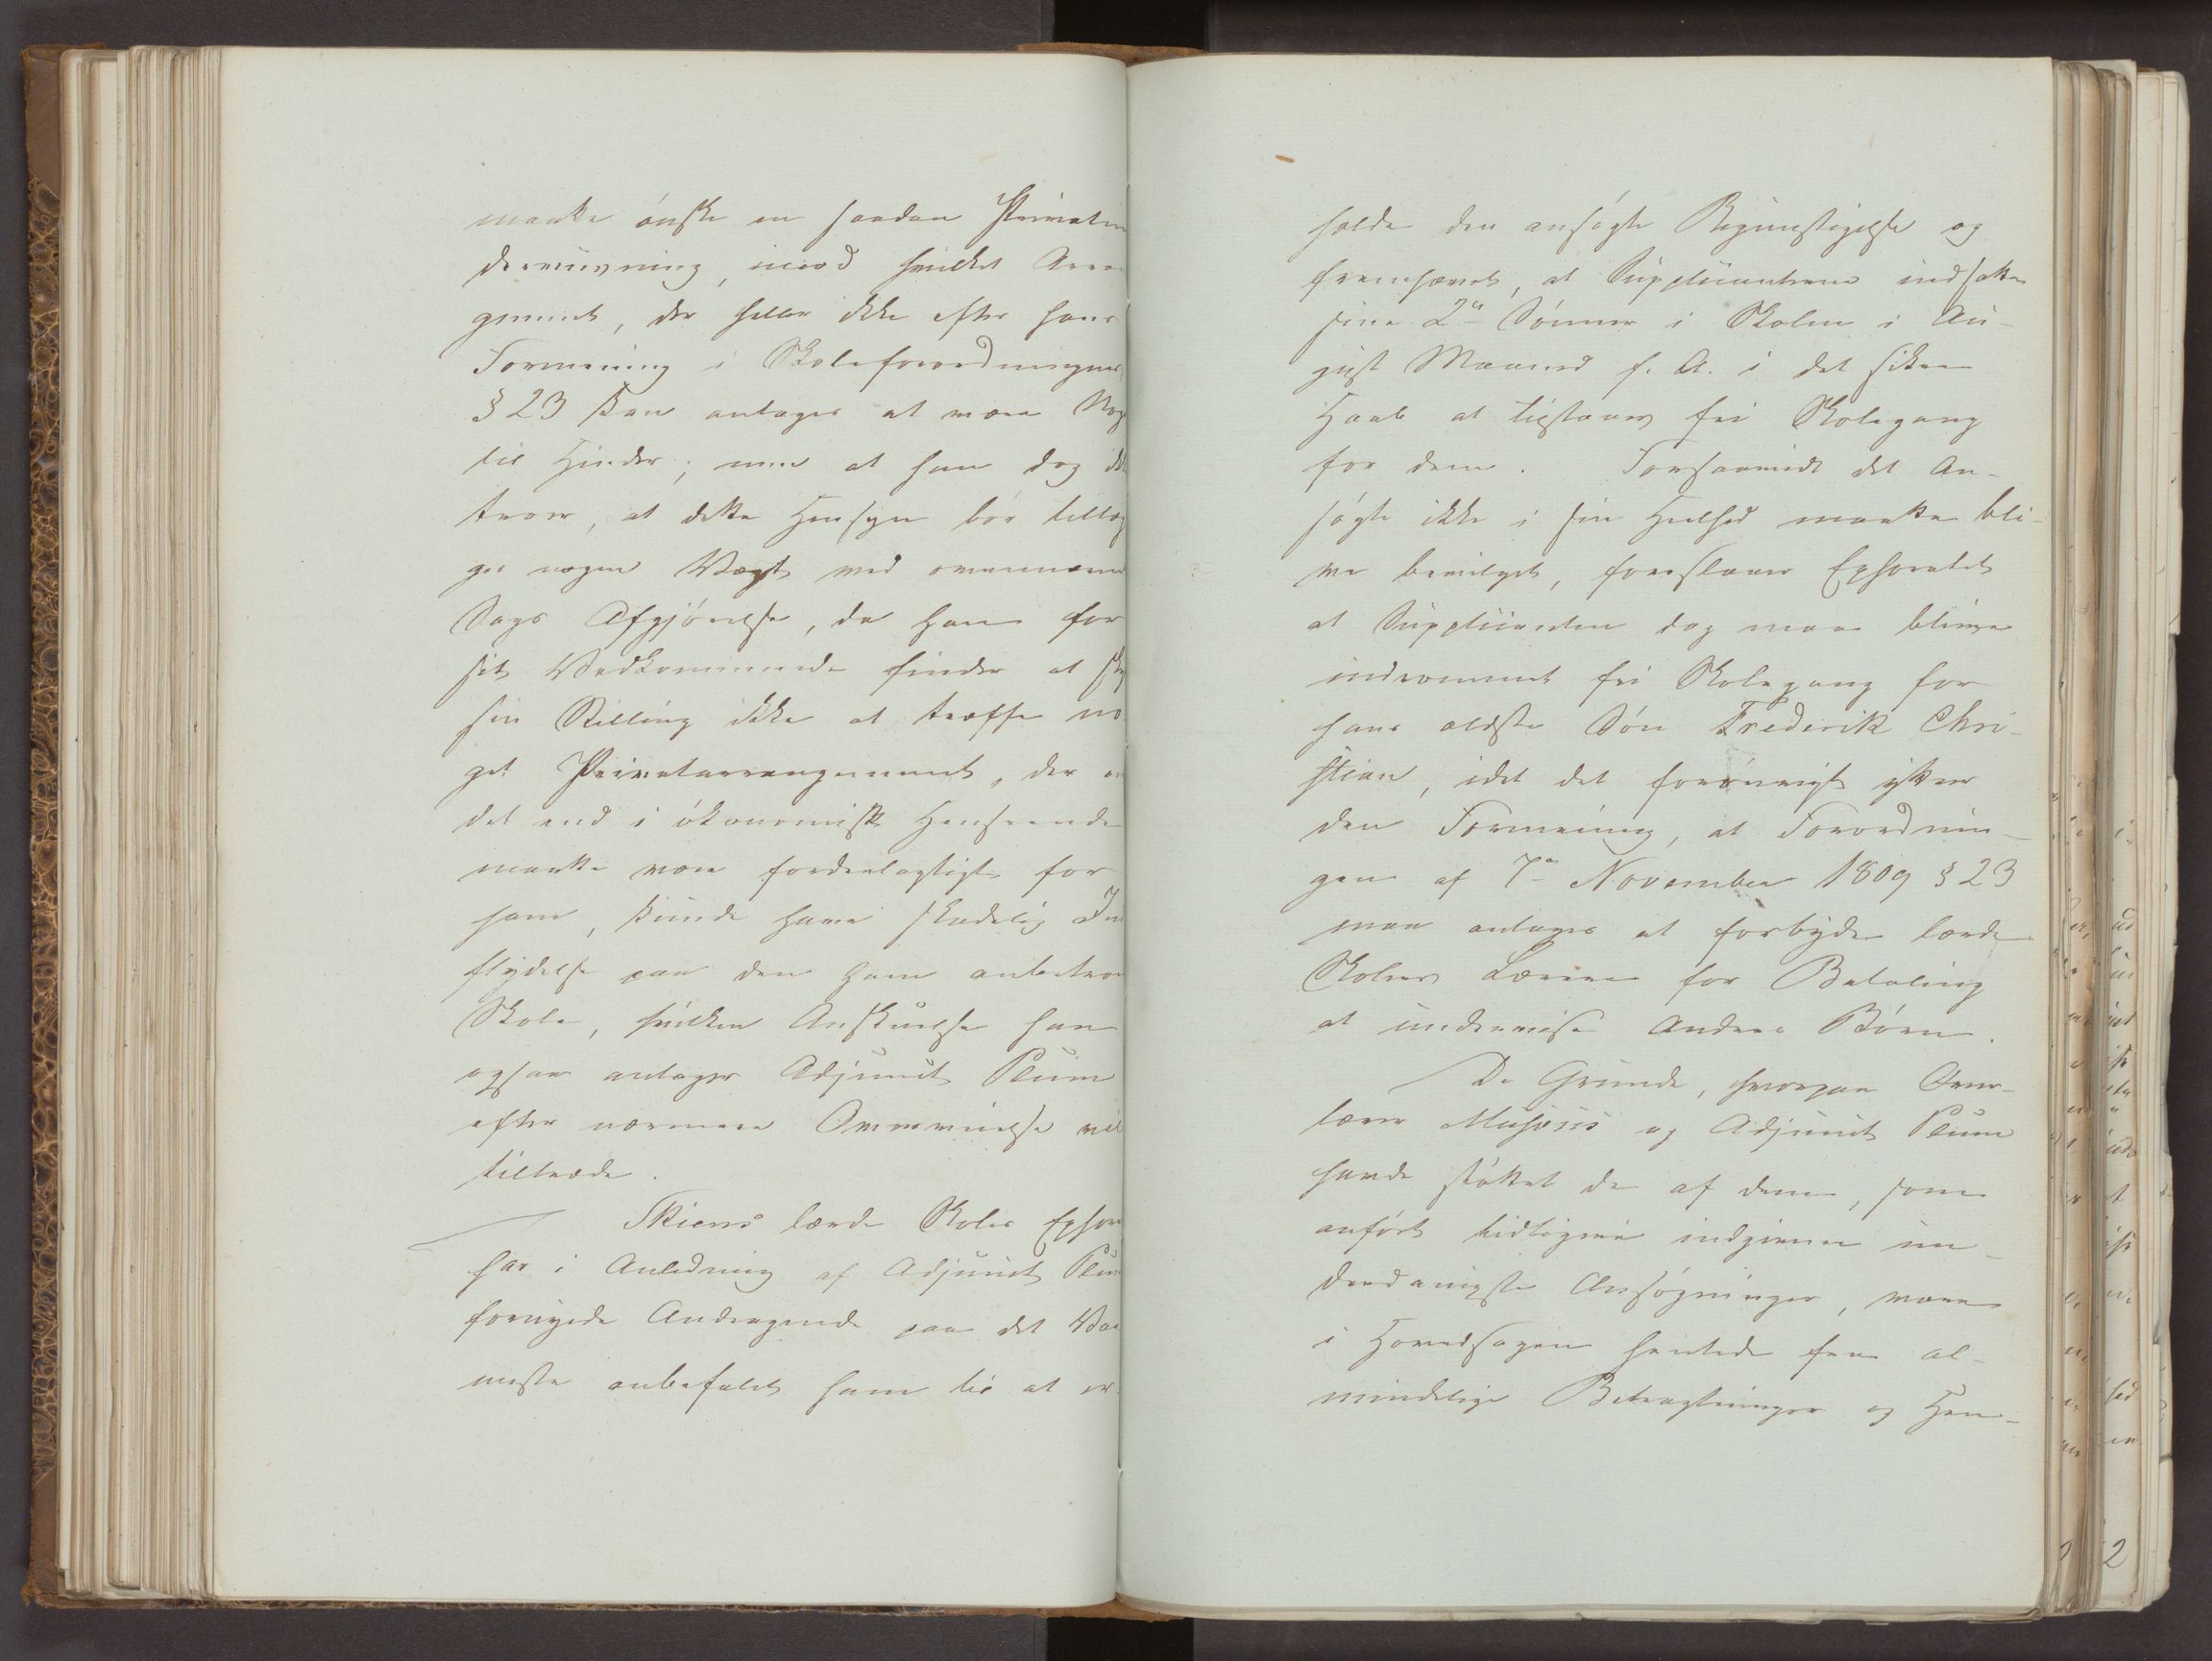 maatte ønske en saadan Privatun
derviisning, imod hvilket Arran
gement, der heller ikke efter hans
Formening i Skoleforordningens
§ 23 kan antages at være Nog
til Hinder; men at han dog ikke
troer, at dette Hensyn bør tillæg
ges nogen Vægt ved ovennævn
Sags Afgjørelse, da han for
sit Vedkommende finder at sky
sin Stilling ikke at træffe no
get Privatarrangement, der an
det end i økonomisk Henseende
maatte være fordeelagtigt for
ham, kunde have skadelig Ind
flydelse paa den ham anbetroe
Skole, hvilken Anskuelse han
ogsaa antager Adjunct Plum
efter nærmere Overveielse vil
tiltræde.
Skiens lærde Skoles Ephor
har i Anledning af Adjunct Plum
fornyede Andragende paa det Var
meste anbefalet ham til at er
holde den ansøgte Begunstigelse og
fremhævet, at Supplicanten indsatte
sine 2de Sønner i Skolen i Au-
gust Maaned f. A. i det sikre
Haab at tilstaaes fri Skolegang
for dem. Forsaavidt det An-
søgte ikke i sin Heelhed maatte bli-
ve bevilget, foreslaaer Ephoratet
at Supplicanten dog maa blive
indrømmet fri Skolegang for
hans ældste Søn Frederik Chri-
stian, idet det forøvrigt yttrer
den Formening, at Forordnin-
gen af 7de November 1809 § 23
maa antages at forbyde lærde
Skolers Lærere for Betaling
at undervise Andres Børn.
De Grunde, hvorpaa Over-
lærer Musæus og Adjunct Plum
havde støttet de af dem, som
anført tidligere indgivne un-
derdanigste Ansøgninger, vare
i Hovedsagen hentede fra al-
mindelige Betragtninger og Hen-